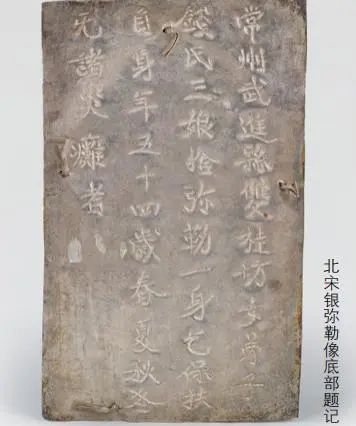 常州武進縣雙桂坊女弟子
錢氏三娘捨弥勒一身乞保扶
自身年五十四歲春夏秋冬
无諸災者
北宋银弥勒像底部题记